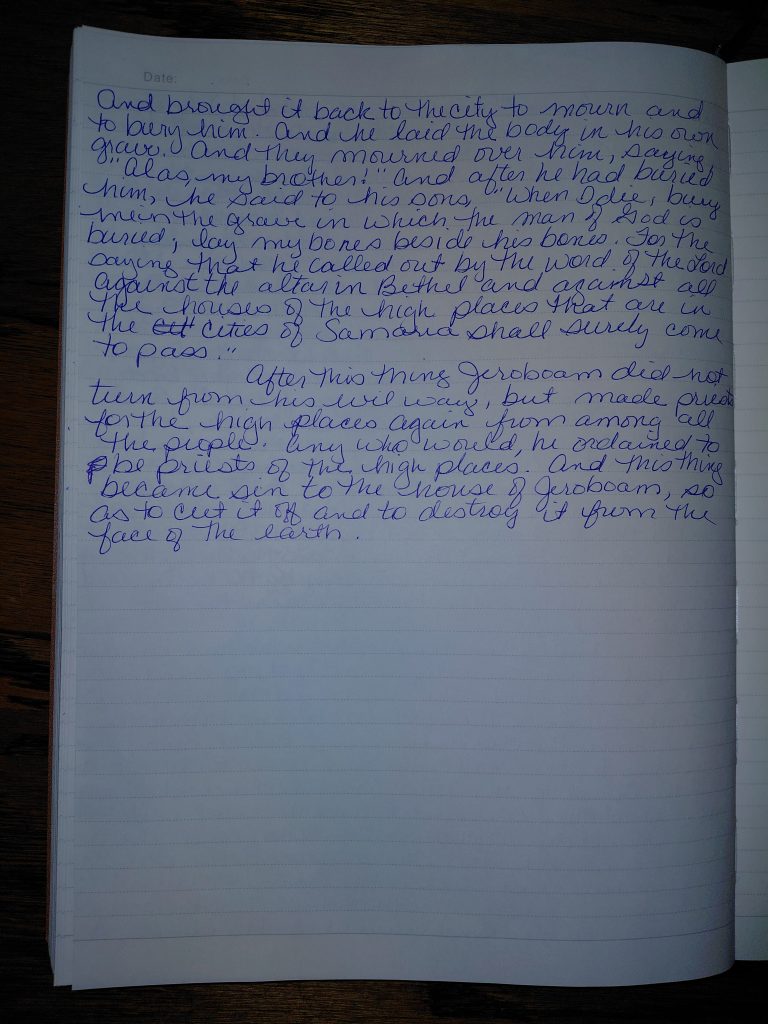 Date:
And brought it back to the city to mourn and
to bury him. And he laid the body in his own
grave. And they mourned over him, saying,
"Alas, my brother!" And after he had buried
him, he said to his sons, "When I die, bury
me in the grave in which the man of God is
buried; lay my bones beside his bones. For the
saying that he called out by the word of the Lord
against the altar in Bethel and against all
the houses of the high places that are in
the cities of Samaria shall surely come
to pass."
After this thing Jeroboam did not
turn from his evil way, but made priests
for the high places again from among all
the people. Any who would, he ordained to
be priests of the high places. And this thing
became sin to the house of Jeroboam, so
as to cut it off and to destroy it from the
face of the earth.